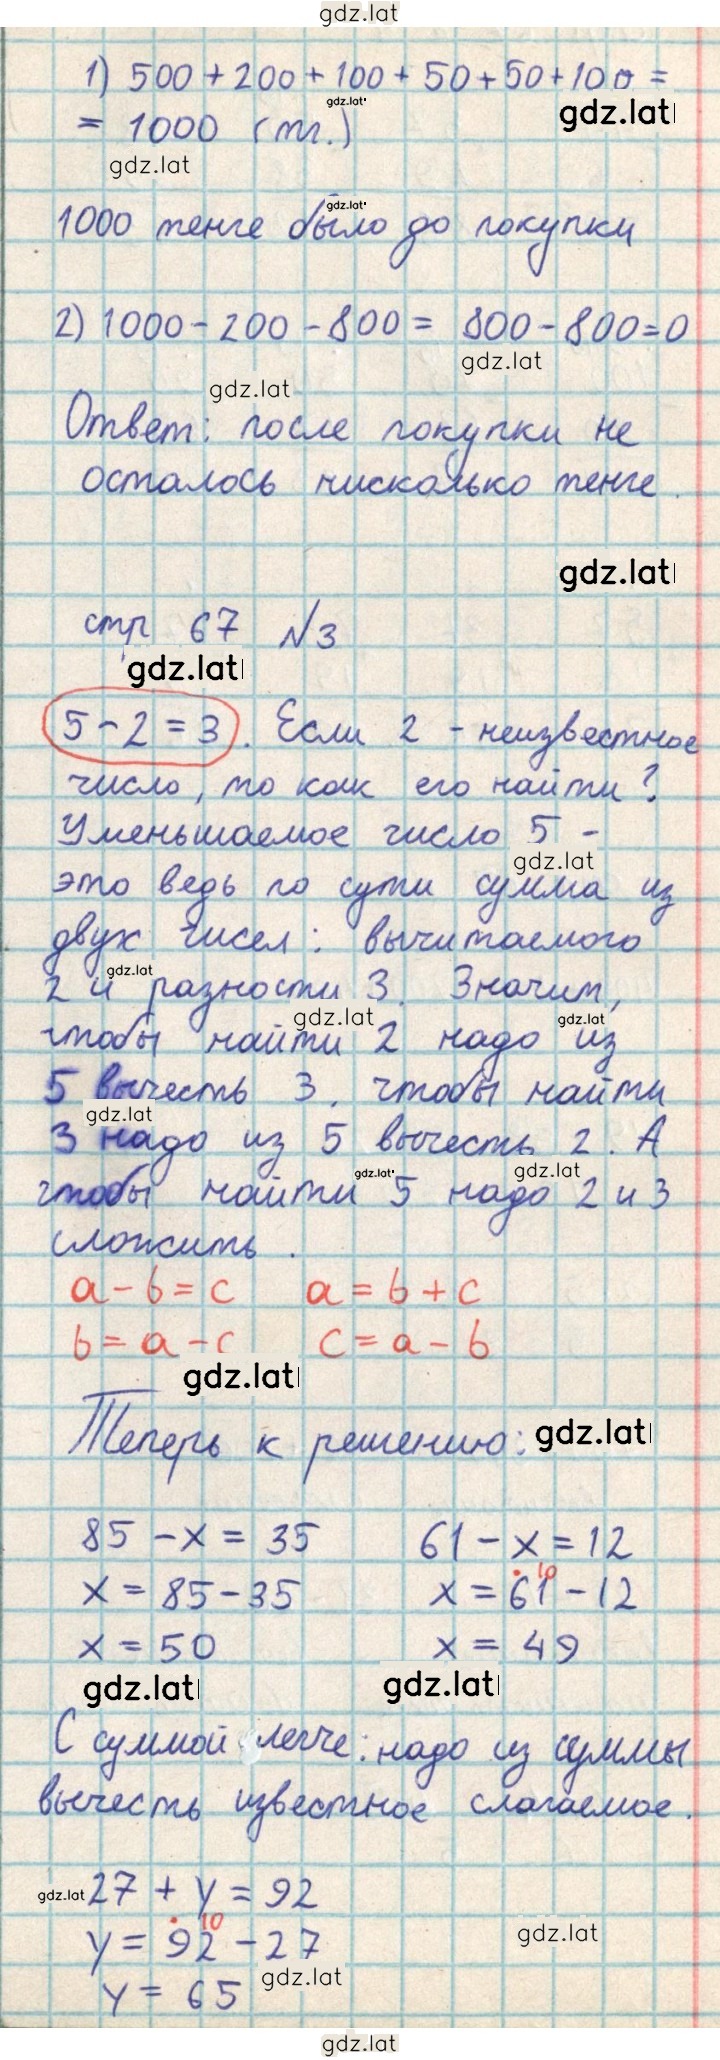 gdz.lat
1) 500 + 200 + 100 + 50 + 50 + 100 =
gdz.lat
gdz.lat
= 1000 (тг.)
gdz.lat
gdz.lat
1000 тенге было до покупки
2) 1000 - 200 - 800 = 800 - 800 = 0
gdz.lat
gdz.lat
Ответ: после покупки не
осталось нисколько тенге.
gdz.lat
стр 67 №3
gdz.lat
5 - 2 = 3. Если 2 - неизвестное
число, то как его найти?
Уменьшаемое число 5 -
gdz.lat
это ведь по сути сумма из
двух чисел: вычитаемого
gdz.lat
2 и разности 3. Значит,
gdz.lat
gdz.lat
чтобы найти 2 надо из
5 вычесть 3. чтобы найти
gdz.lat
3 надо из 5 вычесть 2. А
gdz.lat
gdz.lat
чтобы найти 5 надо 2 и 3
сложить.
a - b = c a = b + c
b = a - c c = a - b
gdz.lat
Теперь к решению:
gdz.lat
85 - x = 35 61 - x = 12
10
x = 85 - 35 x = 61 - 12
x = 50 x = 49
gdz.lat
gdz.lat
С суммой легче: надо из суммы
вычесть известное слагаемое.
gdz.lat
27 + y = 92
10
y = 92 - 27
gdz.lat
gdz.lat
y = 65
gdz.lat